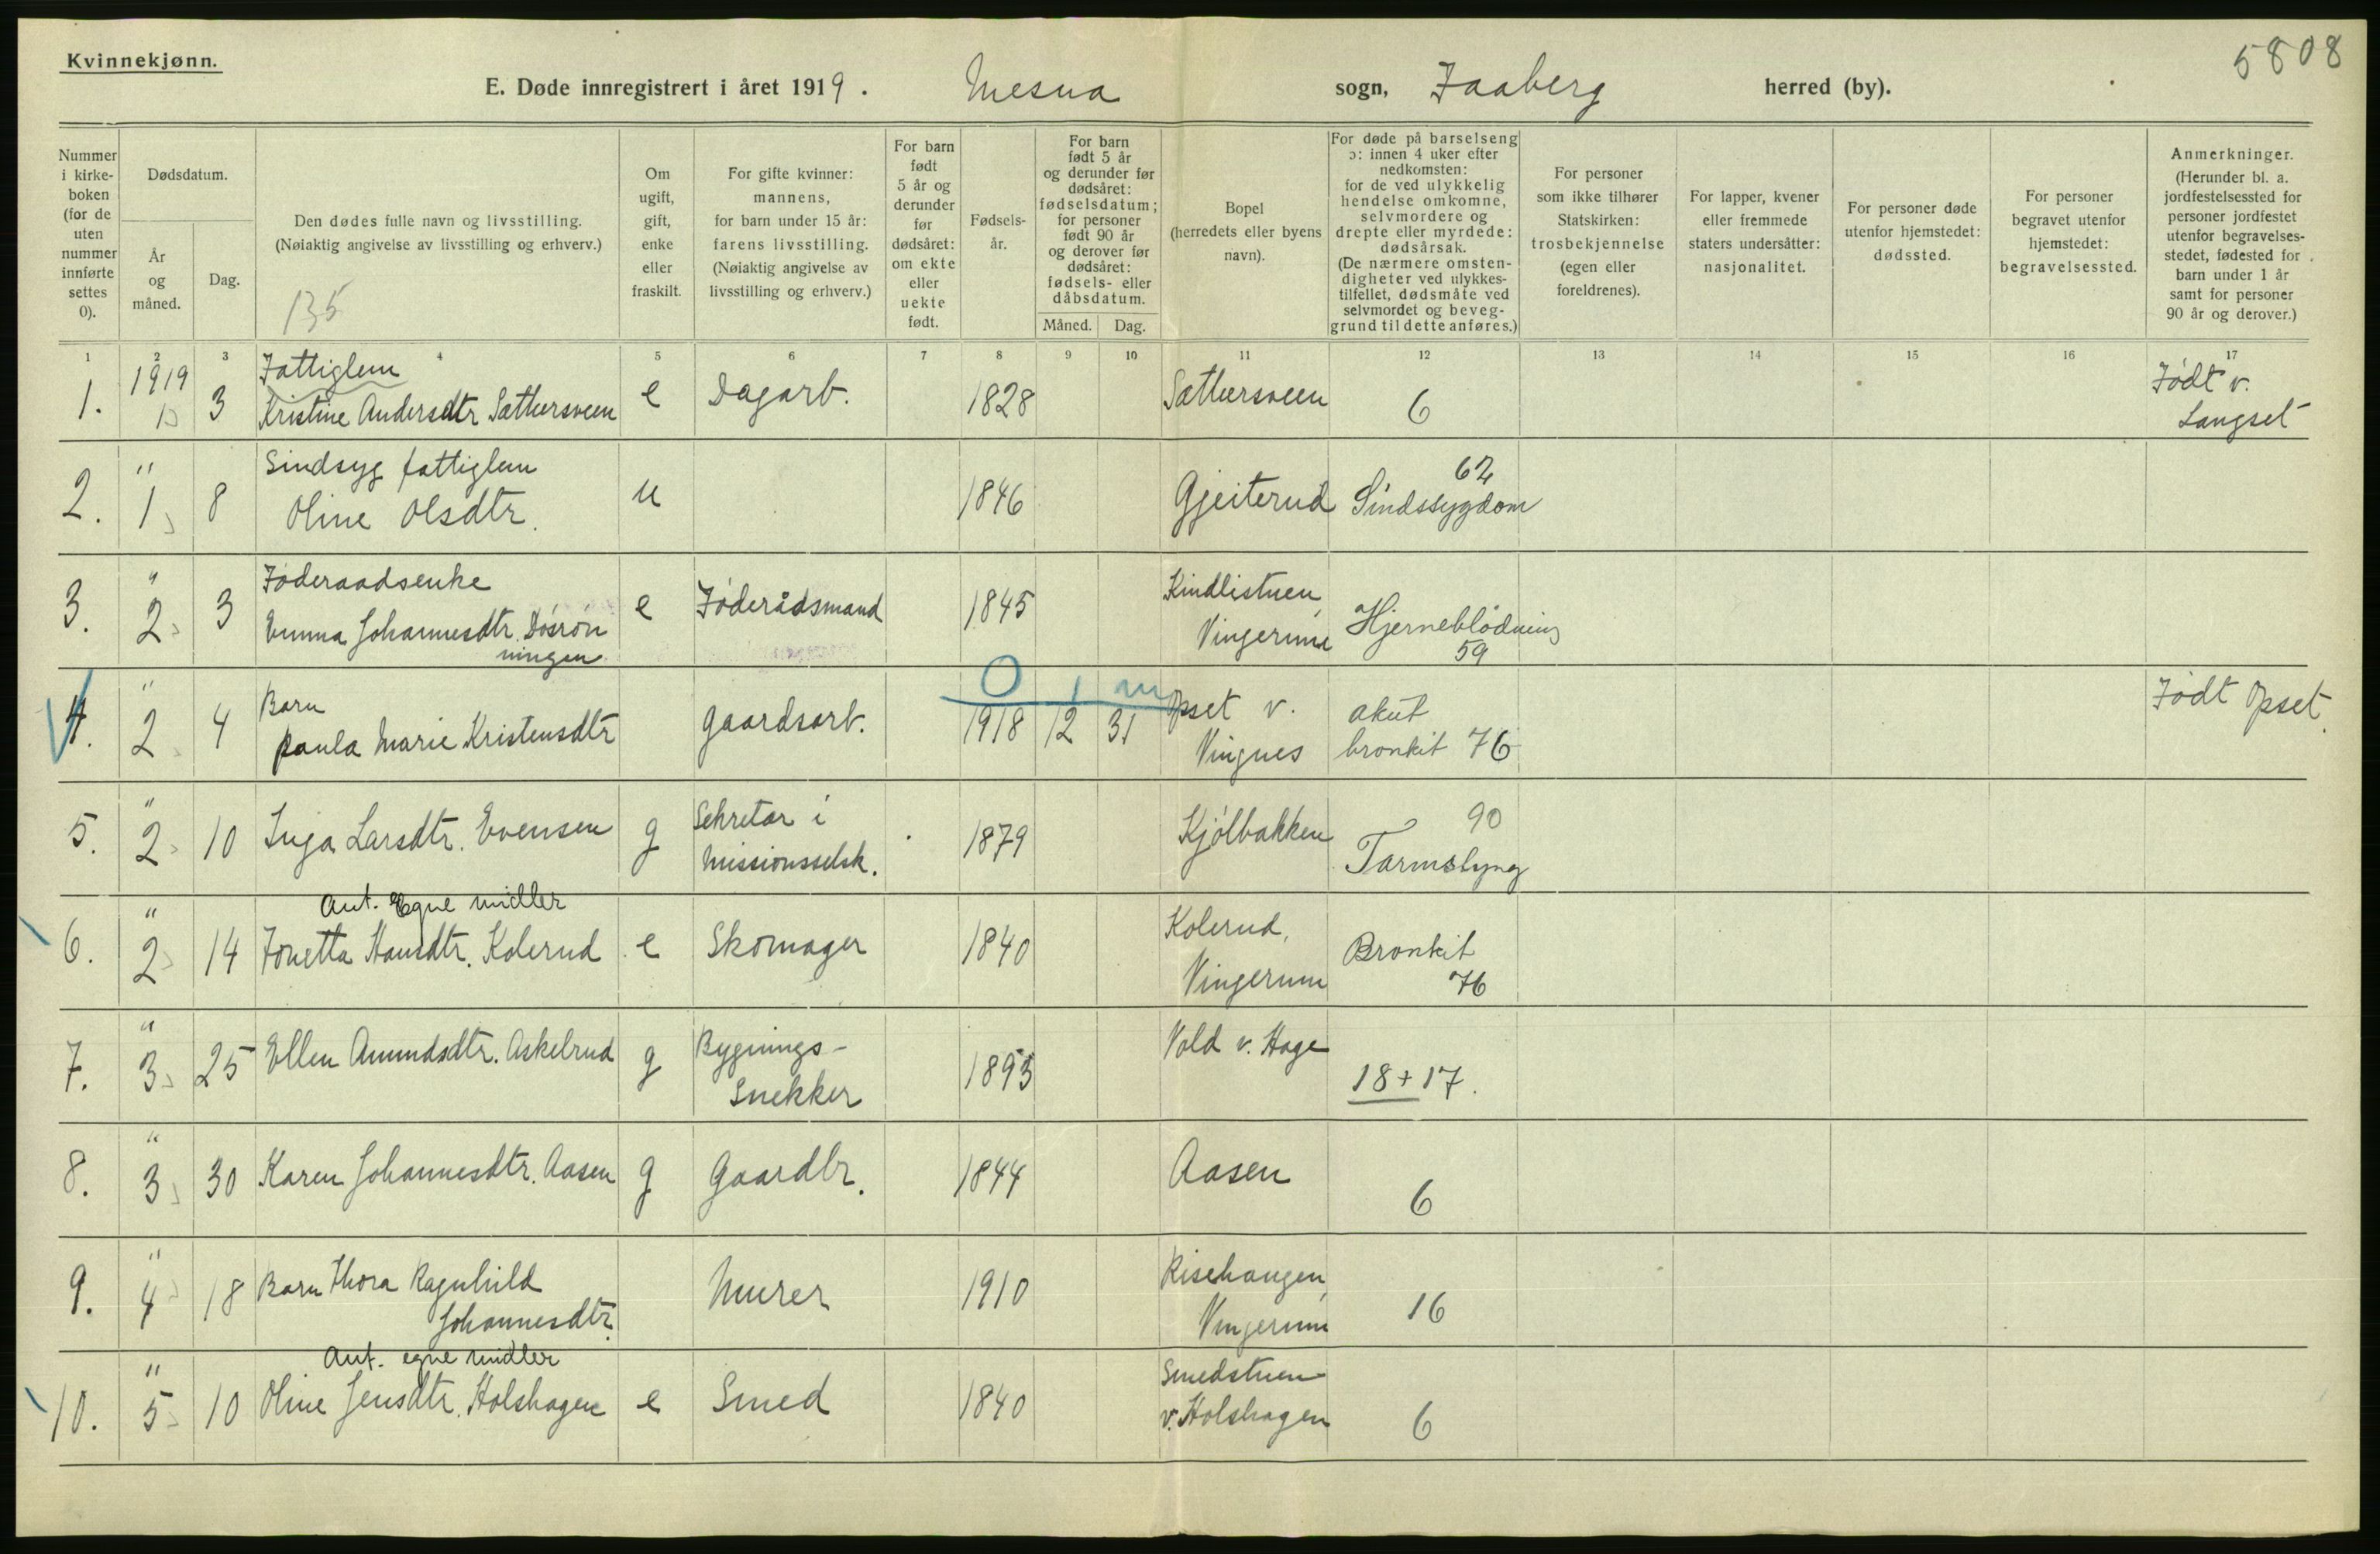 Kvinnekjønn.
5808
E. Døde innregistrert i året 1919. Mesna sogn, Faaberg herred (by).
Nummer i kirkeboken (for de uten nummer innførte settes 0).
Dødsdatum.
År og måned.
Dag.
Den dødes fulle navn og livsstilling.
(Nøiaktig angivelse av livsstilling og erhverv.)
135
Om ugift, gift, enke eller fraskilt.
For gifte kvinner: mannens, for barn under 15 år: farens livsstilling. (Nøiaktig angivelse av livsstilling og erhverv.)
For barn født 5 år og derunder før dødsåret: om ekte eller uekte født.
Fødselsår.
For barn født 5 år og derunder før dødsåret: fødselsdatum; for personer født 90 år og derover før dødsåret: fødsels- eller dåbsdatum.
Måned. Dag.
Bopel (herredets eller byens navn).
For døde på barselseng ɔ: innen 4 uker efter nedkomsten: for de ved ulykkelig hendelse omkomne, selvmordere og drepte eller myrdede: dødsårsak. (De nærmere omstendigheter ved ulykkestilfellet, dødsmåte ved selvmordet og beveggrund til dette anføres.)
For personer som ikke tilhører Statskirken: trosbekjennelse (egen eller foreldrenes).
For lapper, kvener eller fremmede staters undersåtter: nasjonalitet.
For personer døde utenfor hjemstedet: dødssted.
For personer begravet utenfor hjemstedet: begravelsessted.
Anmerkninger. (Herunder bl. a. jordfestelsessted for personer jordfestet utenfor begravelsesstedet, fødested for barn under 1 år samt for personer 90 år og derover.)
1 2 3 4 5 6 7 8 9 10 11 12 13 14 15 16 17
1. 1919 1 3 Fattiglem
Kristine Andersdtr Sæthersveen e Dagarb. 1828 Sæthersveen 6 Født v.
Langset
2. " 1 8 Sindsyg fattiglem
Oline Olsdtr. u 1846 Gjeiterud 62
Sindssygdom
3. " 2 3 Føderaadsenke
Emma Johannesdtr. Døsrøn
ningen e Føderådsmand 1845 Kindlistuen,
Vingerum Hjerneblødning
59
4. " 2 4 Barn
Paula Marie Kristensdtr gaardsarb. 0 1 m
1918 12 31 Opset v.
Vingnes akut
bronkit 76 Født Opset.
5. " 2 10 Inga Larsdtr. Evensen g Sekretær i
Missionsselsk. 1879 Kjølbakken 90
Tarmslyng
6. " 2 14 Ant. Egne midler
Jonetta Hansdtr. Kolerud e Skomager 1840 Kolerud,
Vingerum Bronkit
76
7. " 3 25 Ellen Amundsdtr. Askelrud g Bygnings-
Snekker 1893 Vold v. Hage 18+17.
8. " 3 30 Karen Johannesdtr. Aasen g Gaardbr. 1844 Aasen 6
9. " 4 18 Barn Thora Ragnhild
Johannesdtr. Murer 1910 Risehaugen,
Vingerum 16
10. " 5 10 Ant. egne midler
Oline Jensdtr. Holshagen e Smed 1840 Smedstuen
v. Holshagen 6